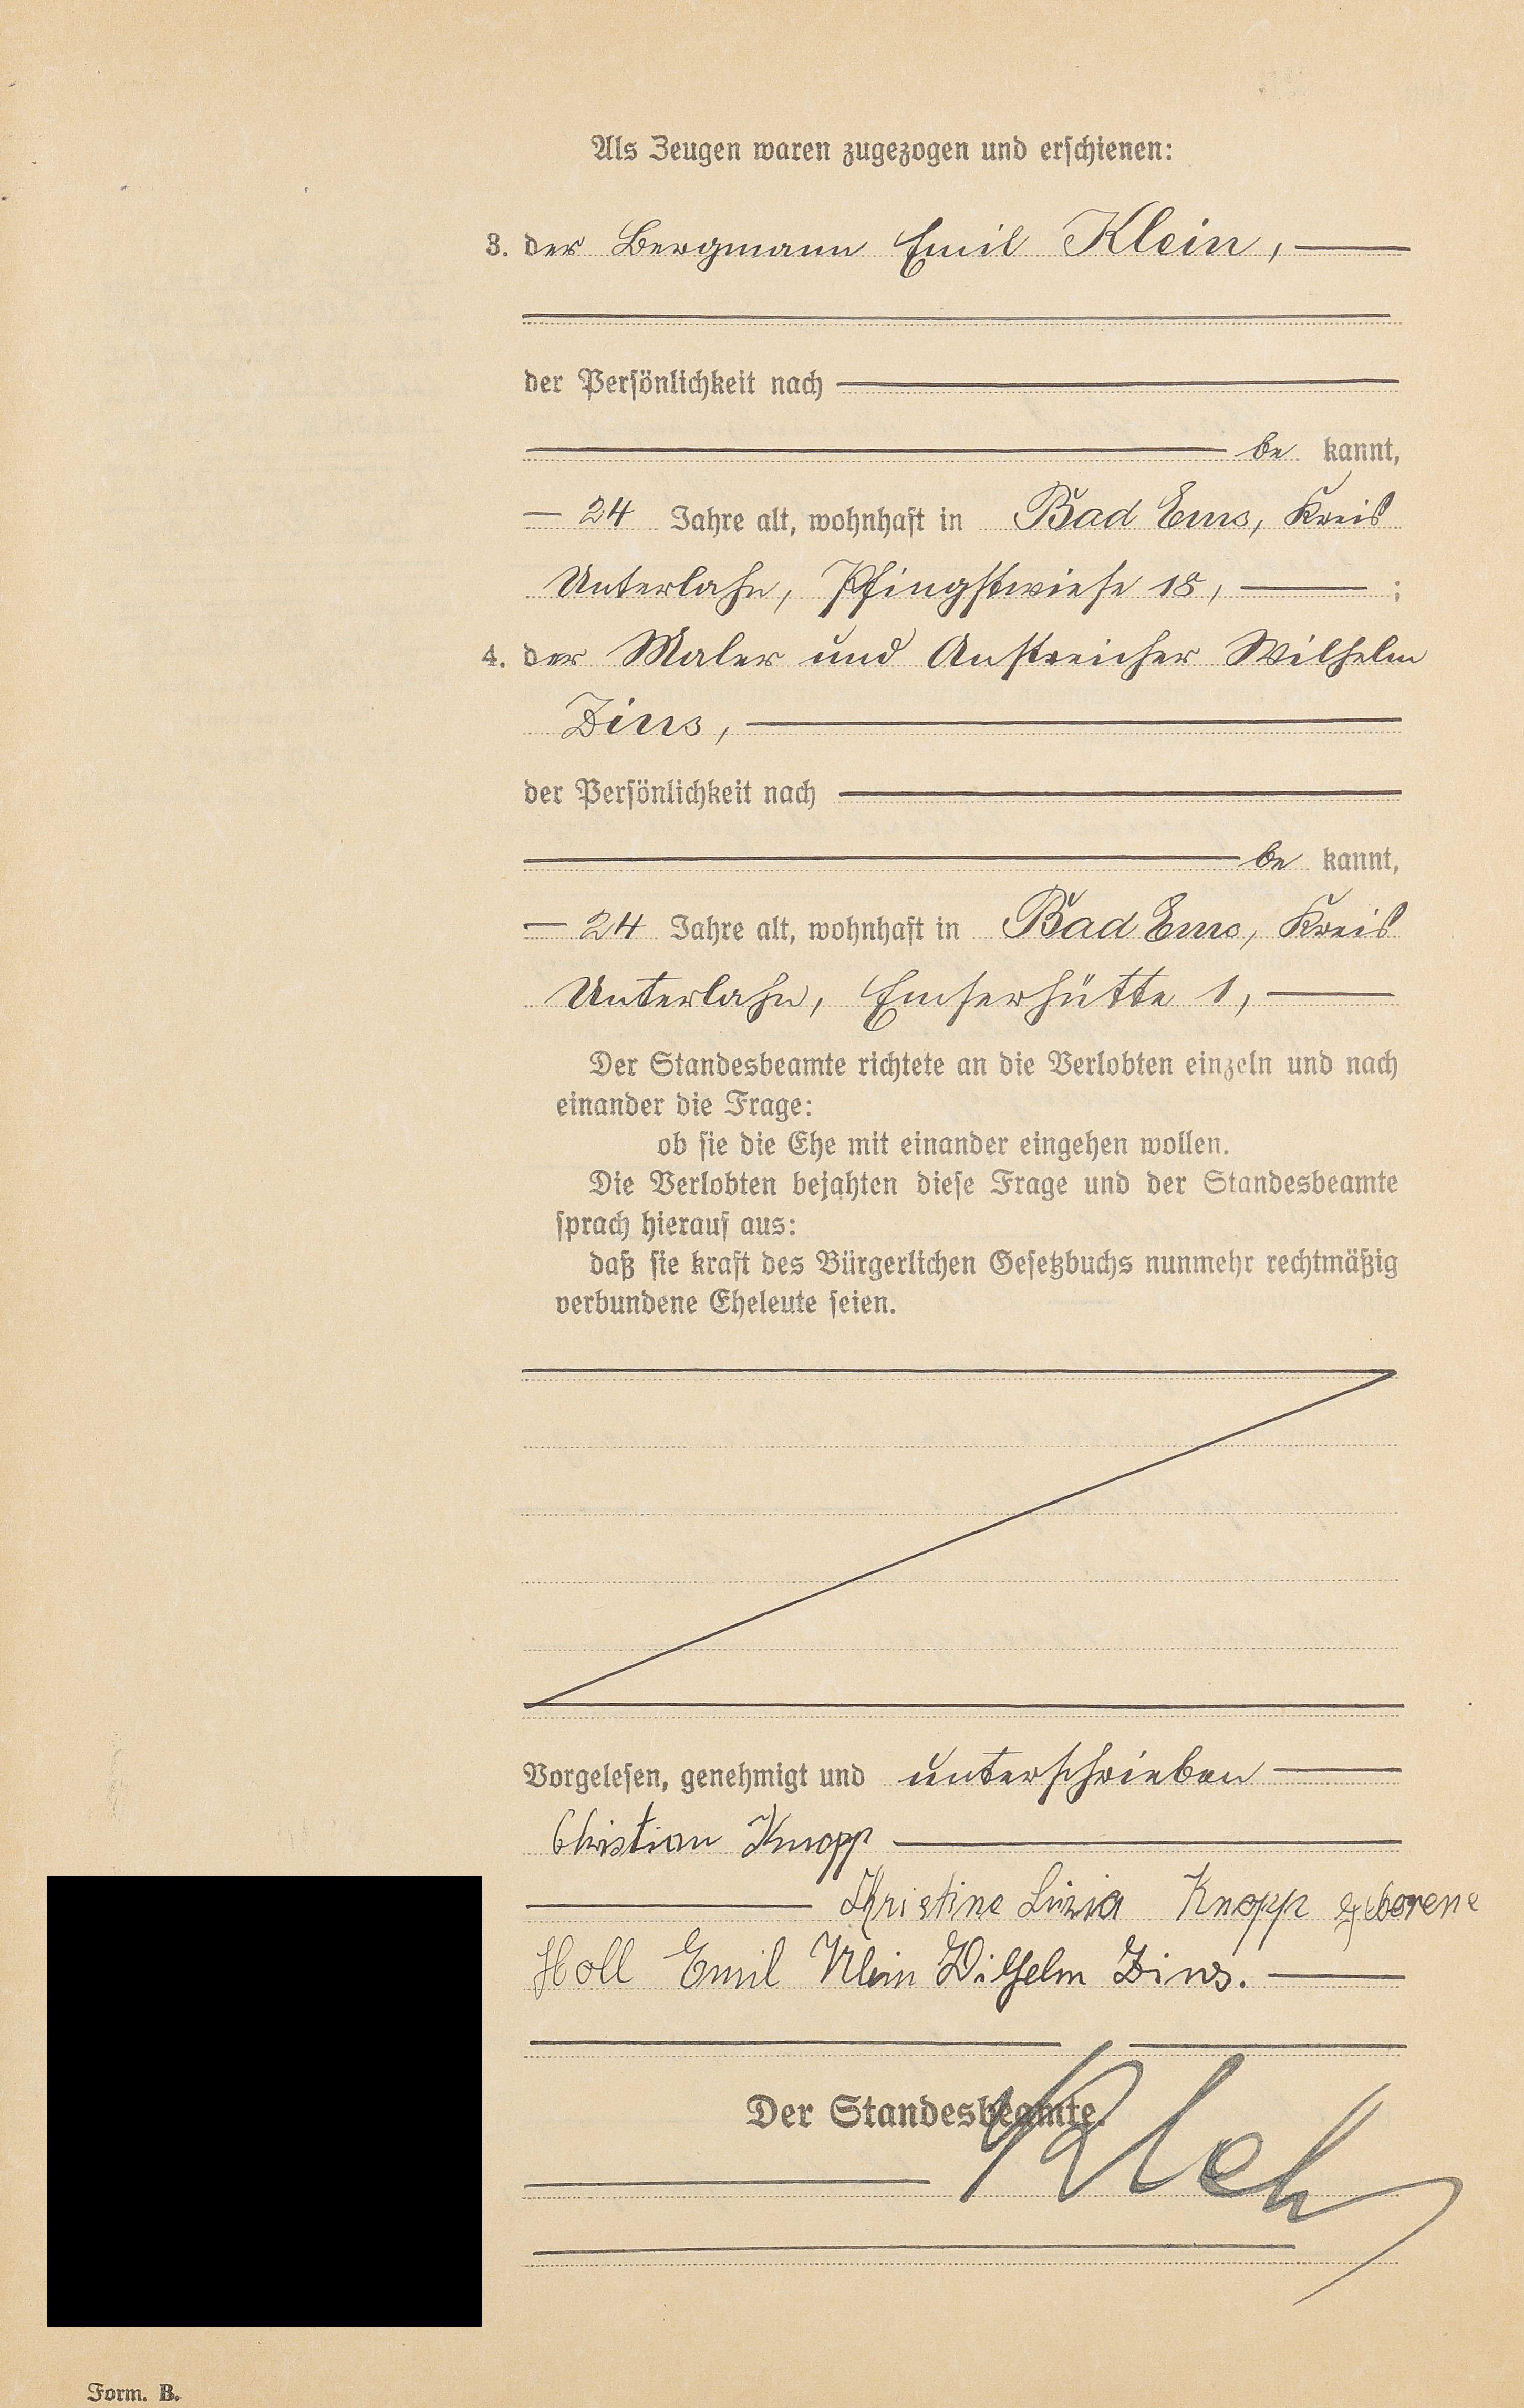 Als Zeugen waren zugezogen und erschienen:
3. der Bergmann Emil Klein,
der Persönlichkeit nach
be kannt,
24 Jahre alt, wohnhaft in Bad Ems, Kreis
Unterlahn, Pfingstwiese 18, ;
4. der Maler und Anstreicher Wilhelm
Zins,
der Persönlichkeit nach
be kannt,
24 Jahre alt, wohnhaft in Bad Ems, Kreis
Unterlahn, Emserhütte 1,
Der Standesbeamte richtete an die Verlobten einzeln und nach
einander die Frage:
ob sie die Ehe mit einander eingehen wollen.
Die Verlobten bejahten diese Frage und der Standesbeamte
sprach hierauf aus:
daß sie kraft des Bürgerlichen Gesetzbuchs nunmehr rechtmäßig
verbundene Eheleute seien.
Vorgelesen, genehmigt und unterschrieben
Christian Knopp
Christine Luzia Knopp geborene
Holl Emil Klein Wilhelm Zins.
Der Standesbeamte.
Form. B.